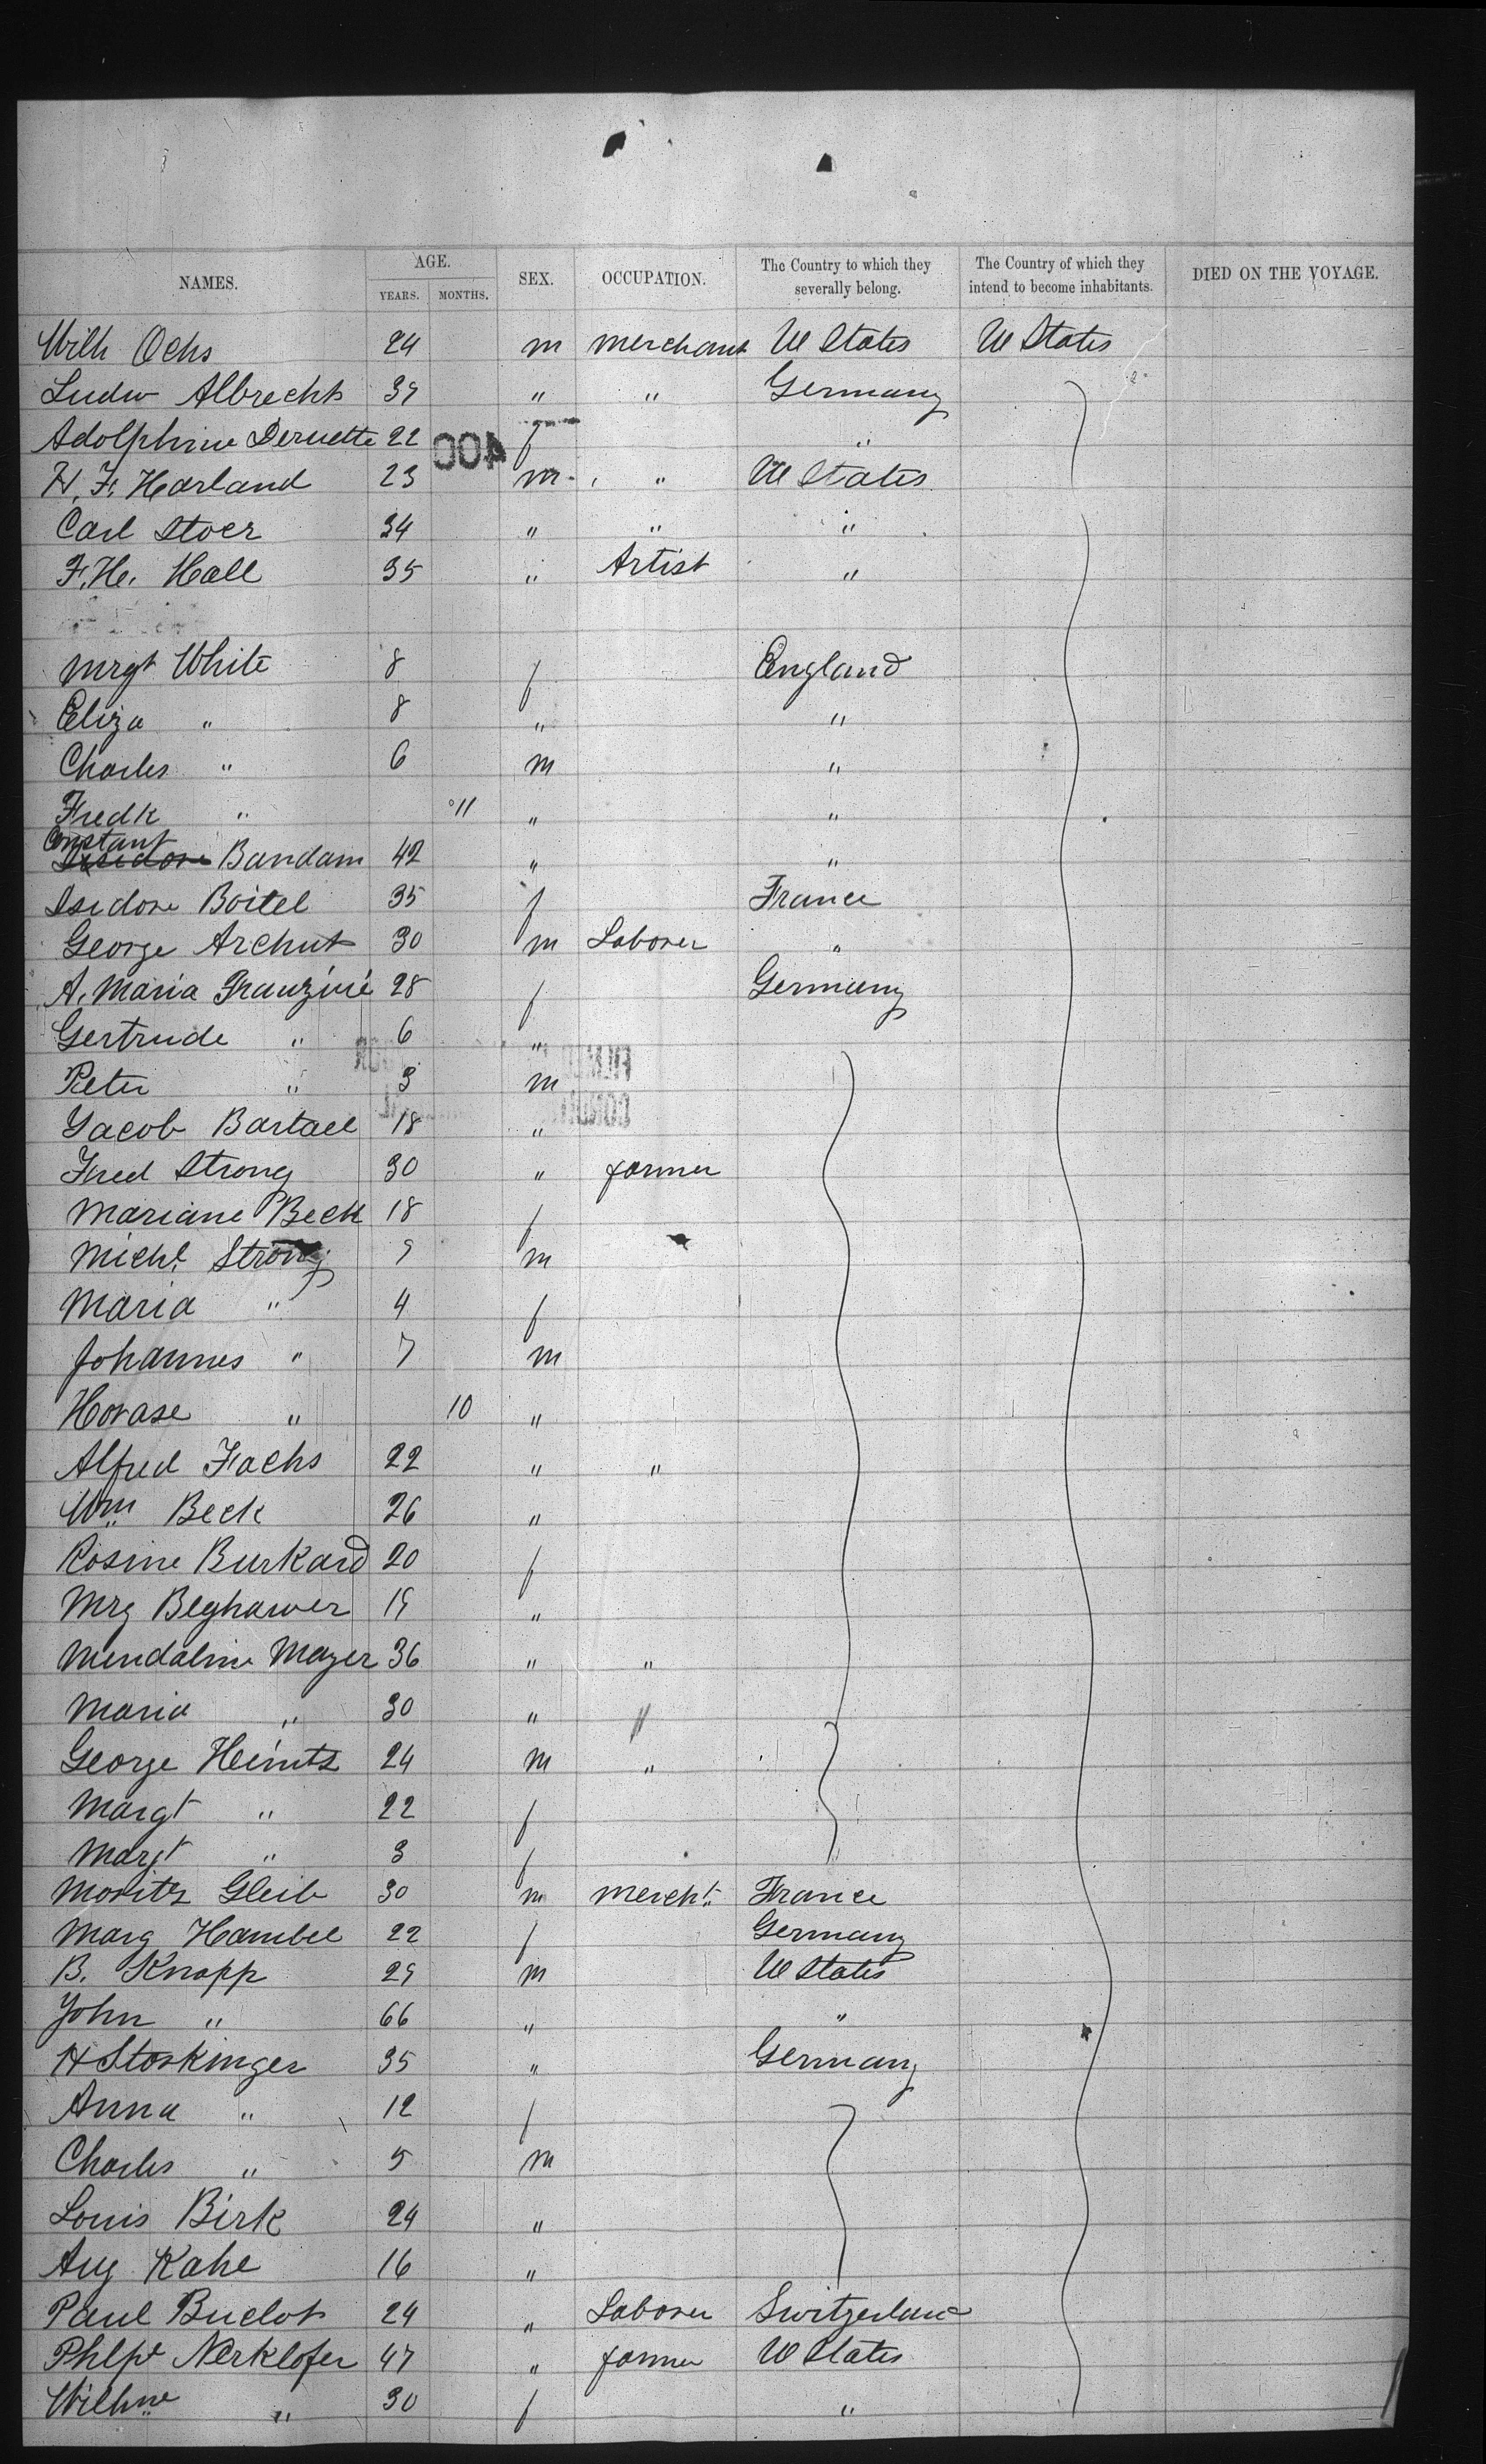 NAMES. AGE. YEARS. MONTHS. SEX. OCCUPATION. The Country to which they severally belong. The Country of which they intend to become inhabitants. DIED ON THE VOYAGE.
Wilh Ochs 24 m merchant U States U States
Ludw Albrecht 39 " " Germany
Adolphine Deruette 22 f "
400
H. F. Harland 23 m " U States
Carl Stoer 34 " " "
F. H. Hall 35 " Artist "
Mrgt White 8 f England
Eliza " 8 " "
Charles " 6 m "
Fredk " 11 " "
Constant
Isidore Bandam 42 " "
Isidore Boitel 35 f France
George Archut 30 m Laborer "
A. Maria Franzine 28 f Germany
Gertrude " 6 "
Peter " 3 m
Yacob Bartael 18 "
Fred Strong 30 " farmer
Mariane Beck 18 f
Michl Strong 9 m
Maria " 4 f
Johannes " 7 m
Horase " 10 "
Alfred Fachs 22 " "
Wm Beck 26 "
Rosine Burkard 20 f
Mrg Beghawer 19 "
Mendaline Mayer 36 " "
Maria " 30 " "
George Heints 24 m "
Margt " 22 f
Margt " 3 f
Moritz Gleib 30 m Mercht France
Marg Hambel 22 f Germany
B. Knapp 29 m U States
John " 66 " "
H Storkinger 35 " Germany
Anna " 12 f
Charles " 5 m
Louis Birk 24 "
Aug Kahe 16 "
Paul Buclot 24 " Laborer Switzerland
Phlpt Nerklofer 47 " farmer U States
Wilhne " 30 f "